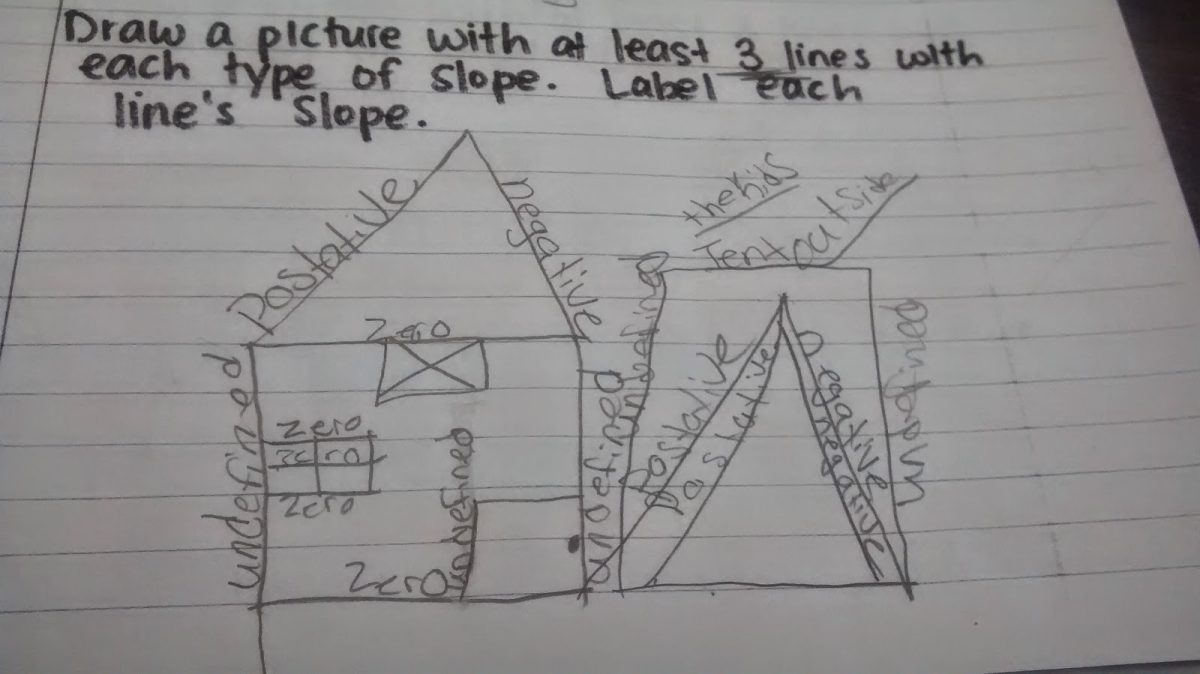 Draw a picture with at least 3 lines with
each type of slope. Label each
line's slope.
Postative
negative
the kids
Tent outside
zero
undefined
undefined
undefined
undefined
zero
zero
zero
undefined
zero
Postative
Postative
negative
negative